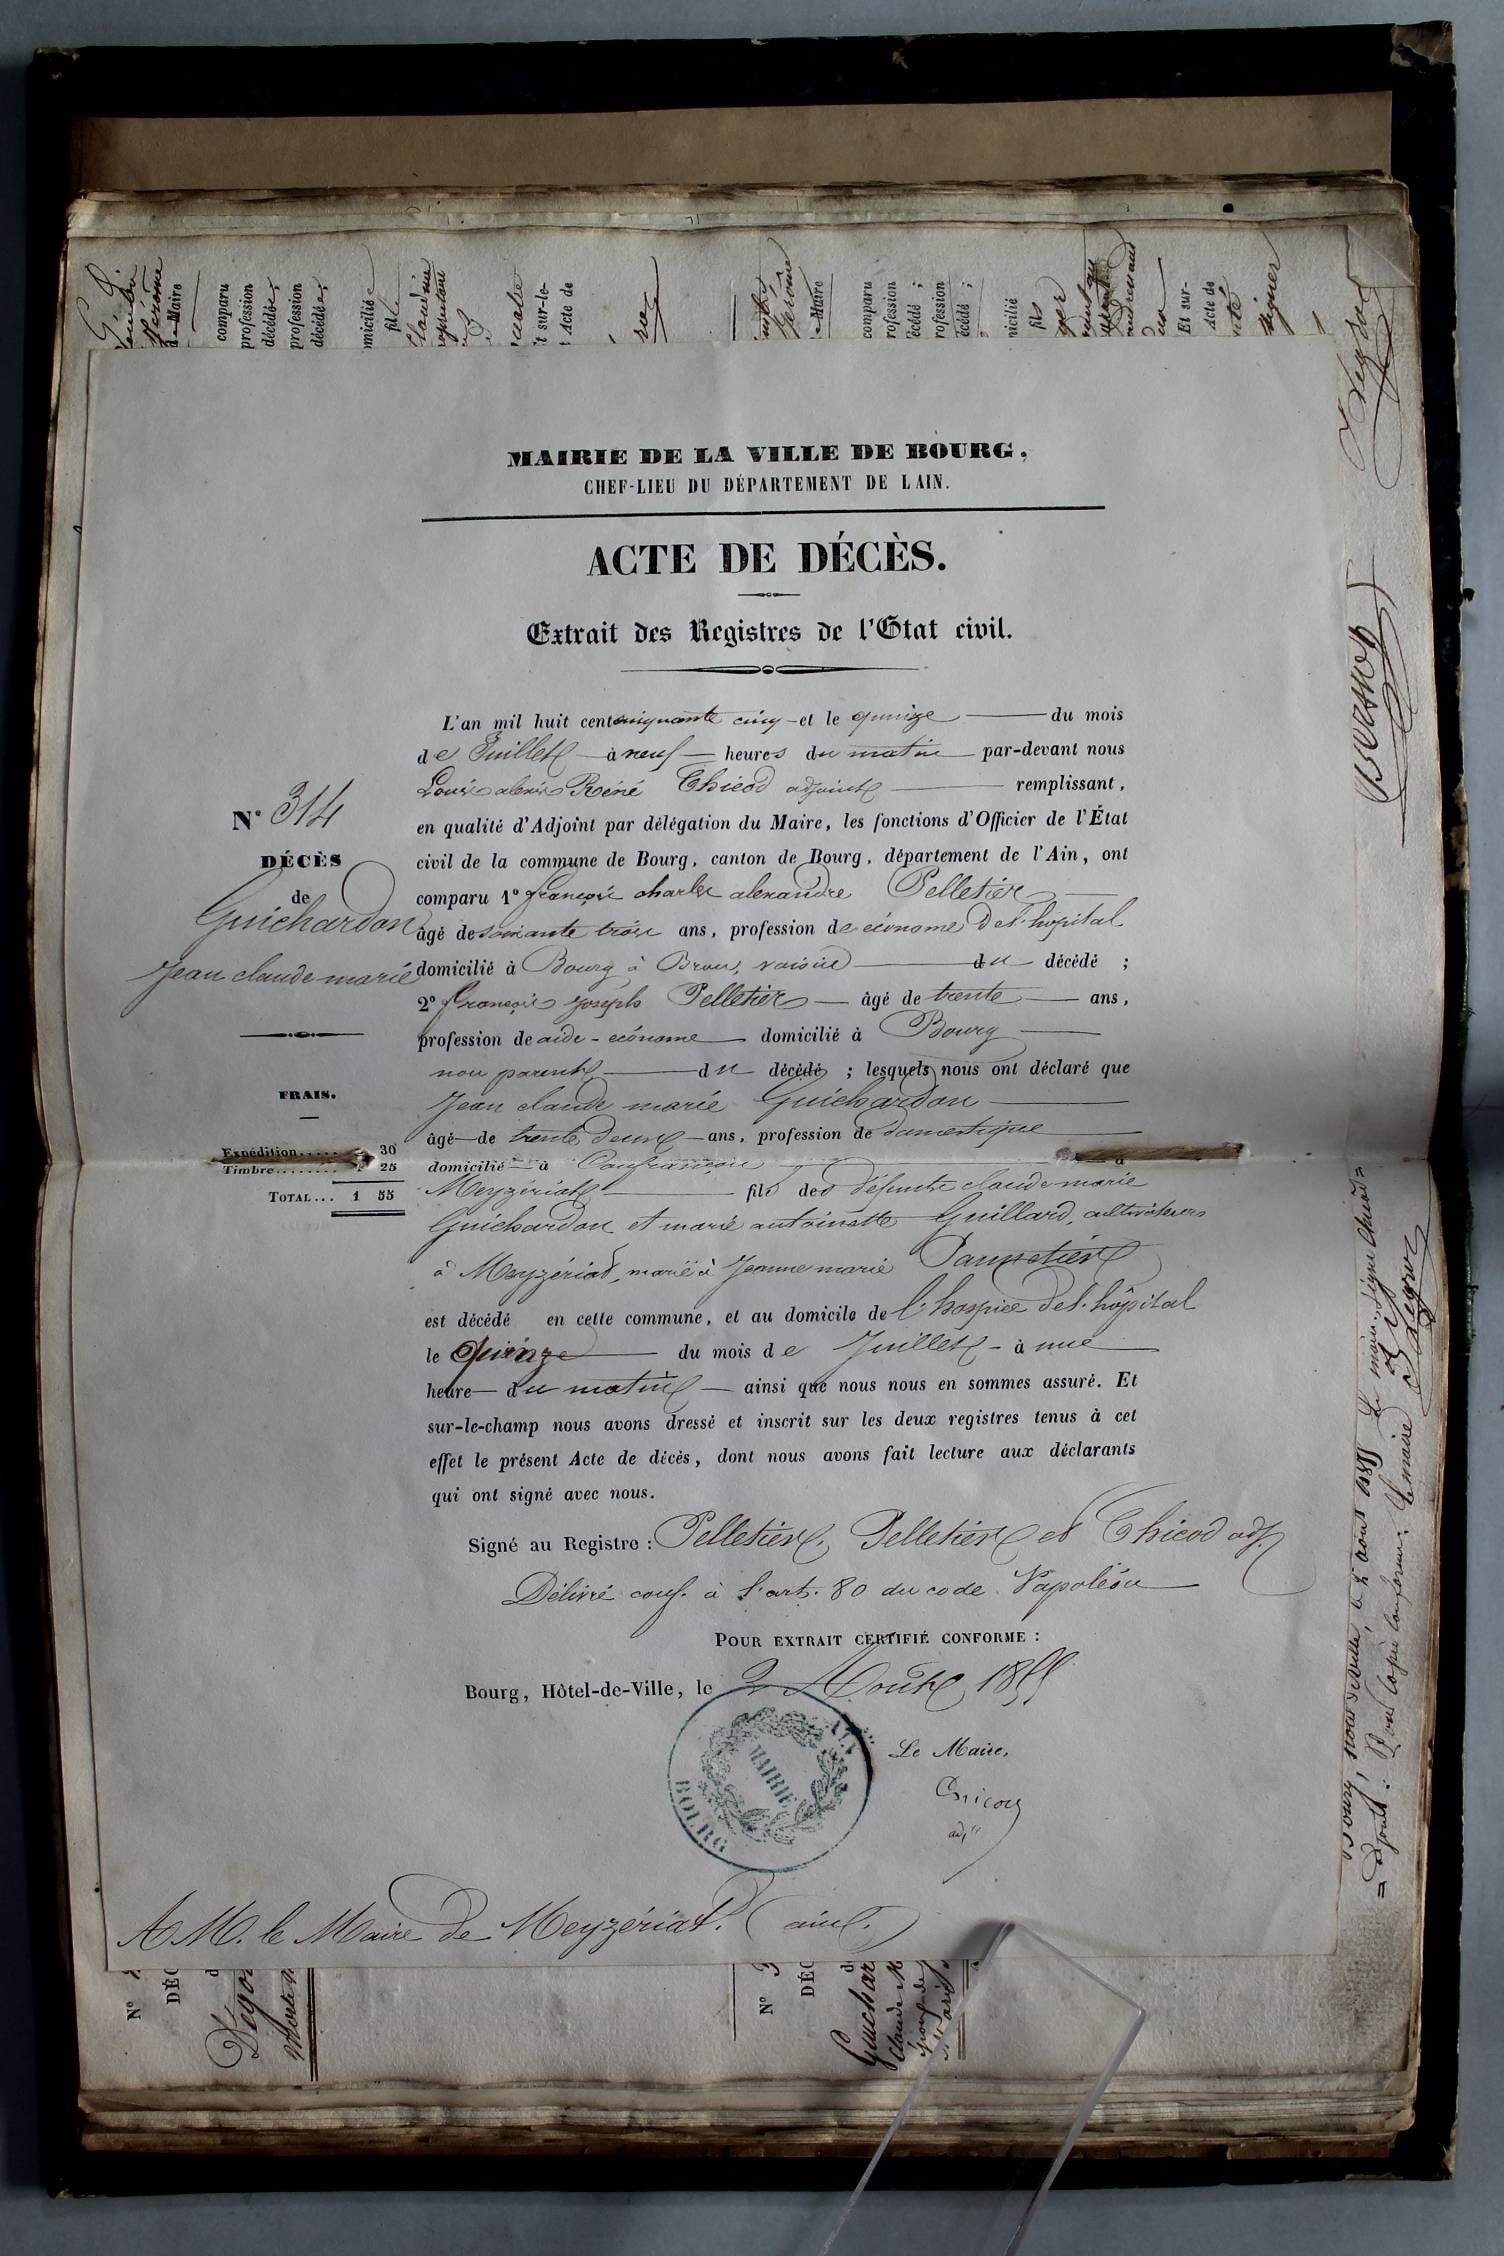 MAIRIE DE LA VILLE DE BOURG,
CHEF-LIEU DU DÉPARTEMENT DE LAIN.
ACTE DE DÉCÈS.
Extrait des Registres de l'Etat civil.
N° 314
DÉCÈS
de
Guichardon
Jean claude marie
FRAIS.
Expédition..... 30
Timbre........ 1 25
TOTAL... 1 55
L'an mil huit cent cinquante cinq et le quinze du mois
de Juillet à neuf heures du matin par-devant nous
Louis alexis Réné Chicod adjoint remplissant,
en qualité d'Adjoint par délégation du Maire, les fonctions d'Officier de l'État
civil de la commune de Bourg, canton de Bourg, département de l'Ain, ont
comparu 1° françois charles alexandre Pelletier
âgé de soixante trois ans, profession de économe de l'hôpital
domicilié à Bourg à Brou, voisin du décédé ;
2° françois joseph Pelletier âgé de trente ans,
profession de aide-économe domicilié à Bourg
non parent du décédé ; lesquels nous ont déclaré que
Jean claude marie Guichardon
âgé de trente deux ans, profession de domestique
domicilié à Confrançon à
Meyzériat fils de défunts claude marie
Guichardon et marie antoinette Guillard, cultivateurs
à Meyzériat, marié à Jeanne marie
est décédé en cette commune, et au domicile de l'hospice de l'hôpital
le Quinze du mois de Juillet à une
heure du matin ainsi que nous nous en sommes assuré. Et
sur-le-champ nous avons dressé et inscrit sur les deux registres tenus à cet
effet le présent Acte de décès, dont nous avons fait lecture aux déclarants
qui ont signé avec nous.
Signé au Registre : Pelletier, Pelletier et Chicod adj.
Délivré conf. à l'art. 80 du code Napoléon
POUR EXTRAIT CERTIFIÉ CONFORME :
Bourg, Hôtel-de-Ville, le 2 Août 1855
Le Maire,
Chicod
adj
MAIRIE
BOURG
AIN
A M. le Maire de Meyzériat (ain).
Bourg, hotel de ville, le 2 aout 1855 Le maire, signé Chicod =
= adjoint. Pour copie conforme, le maire
Maire
comparu
profession
décédé
profession
décédé
sur-le-
Acte de
Maire
comparu
rofession
écédé ;
rofession
écédé ;
fils
Et sur-
Acte de
signer
N°
DÉC
N° 3
DÉC
Guichar
Claude M